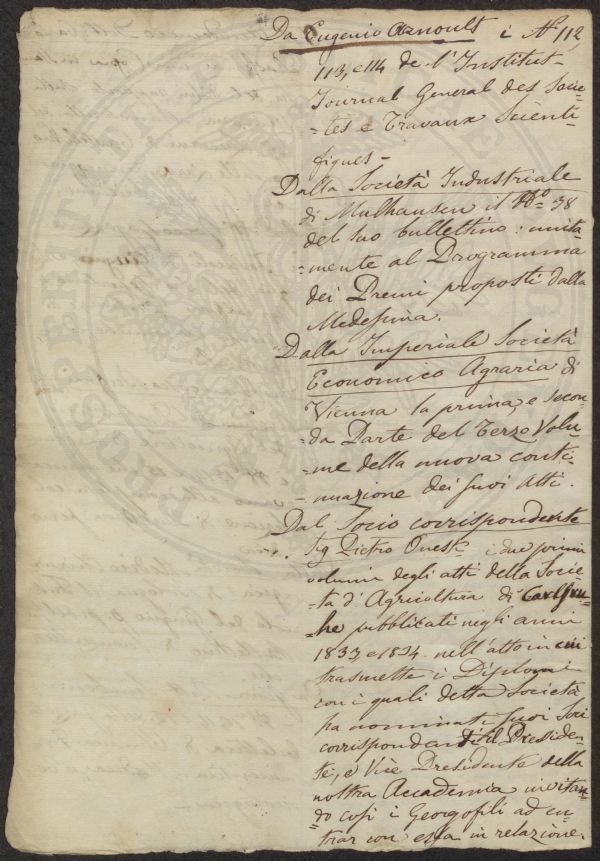 Da Eugenio Arnoult i Nⁱ 112,
113, e 114 de l'Institut-
Journal General des Socie-
=tes e Travaux Scienti-
fiques -
Dalla Società Industriale
di Mulhausen il N.º 38
del suo bullettino: unita-
=mente al Programma
dei Premi proposti dalla
Medesima.
Dalla Imperiale Società
Economico Agraria di
Vienna la prima, e secon-
=da Parte del Terzo Volu-
=me della nuova conti-
=nuazione dei suoi Atti.
Dal Socio corrispondente
Sig Pietro i due primi
volumi degli atti della Socie-
ta d'Agricoltura di Carlsru-
=he pubblicati negli anni
1833, e 1834 nell'atto in cui
trasmette i Diplomi
con i quali detta Società
ha nominati suoi Soci
corrispondenti il Presiden-
te, e Vice Presidente della
nostra Accademia invitan-
=do così i Georgofili ad en-
trar con essa in relazione.